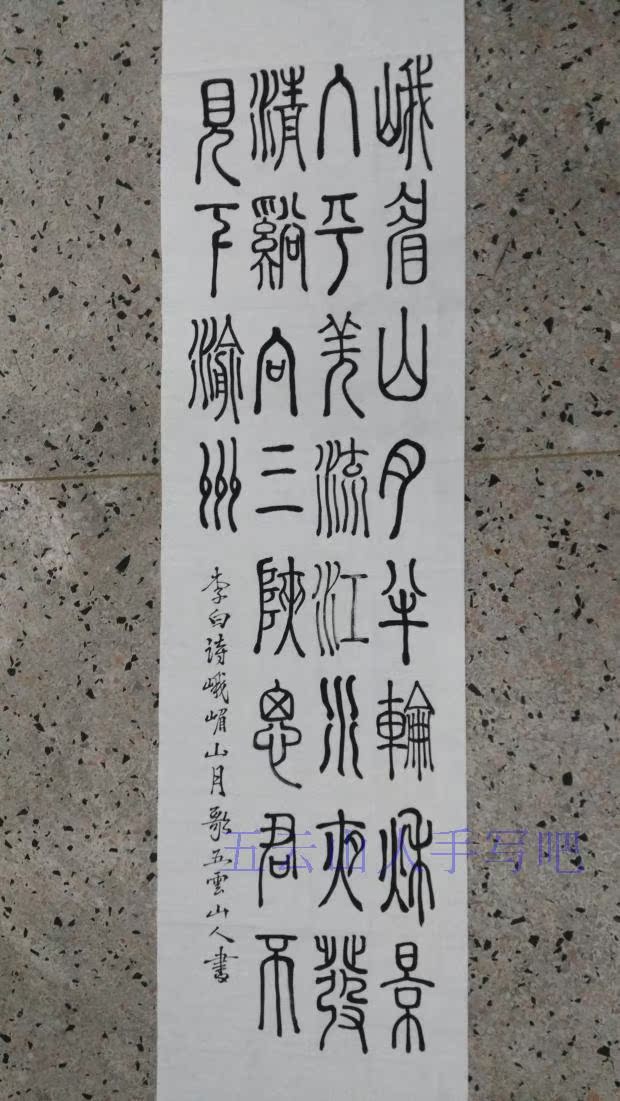 峨眉山月半輪秋景
入平羌流江水夜發
清谿向三陜思君不
見下渝州
李白詩峨嵋山月歌五雲山人書
五云山人手写吧